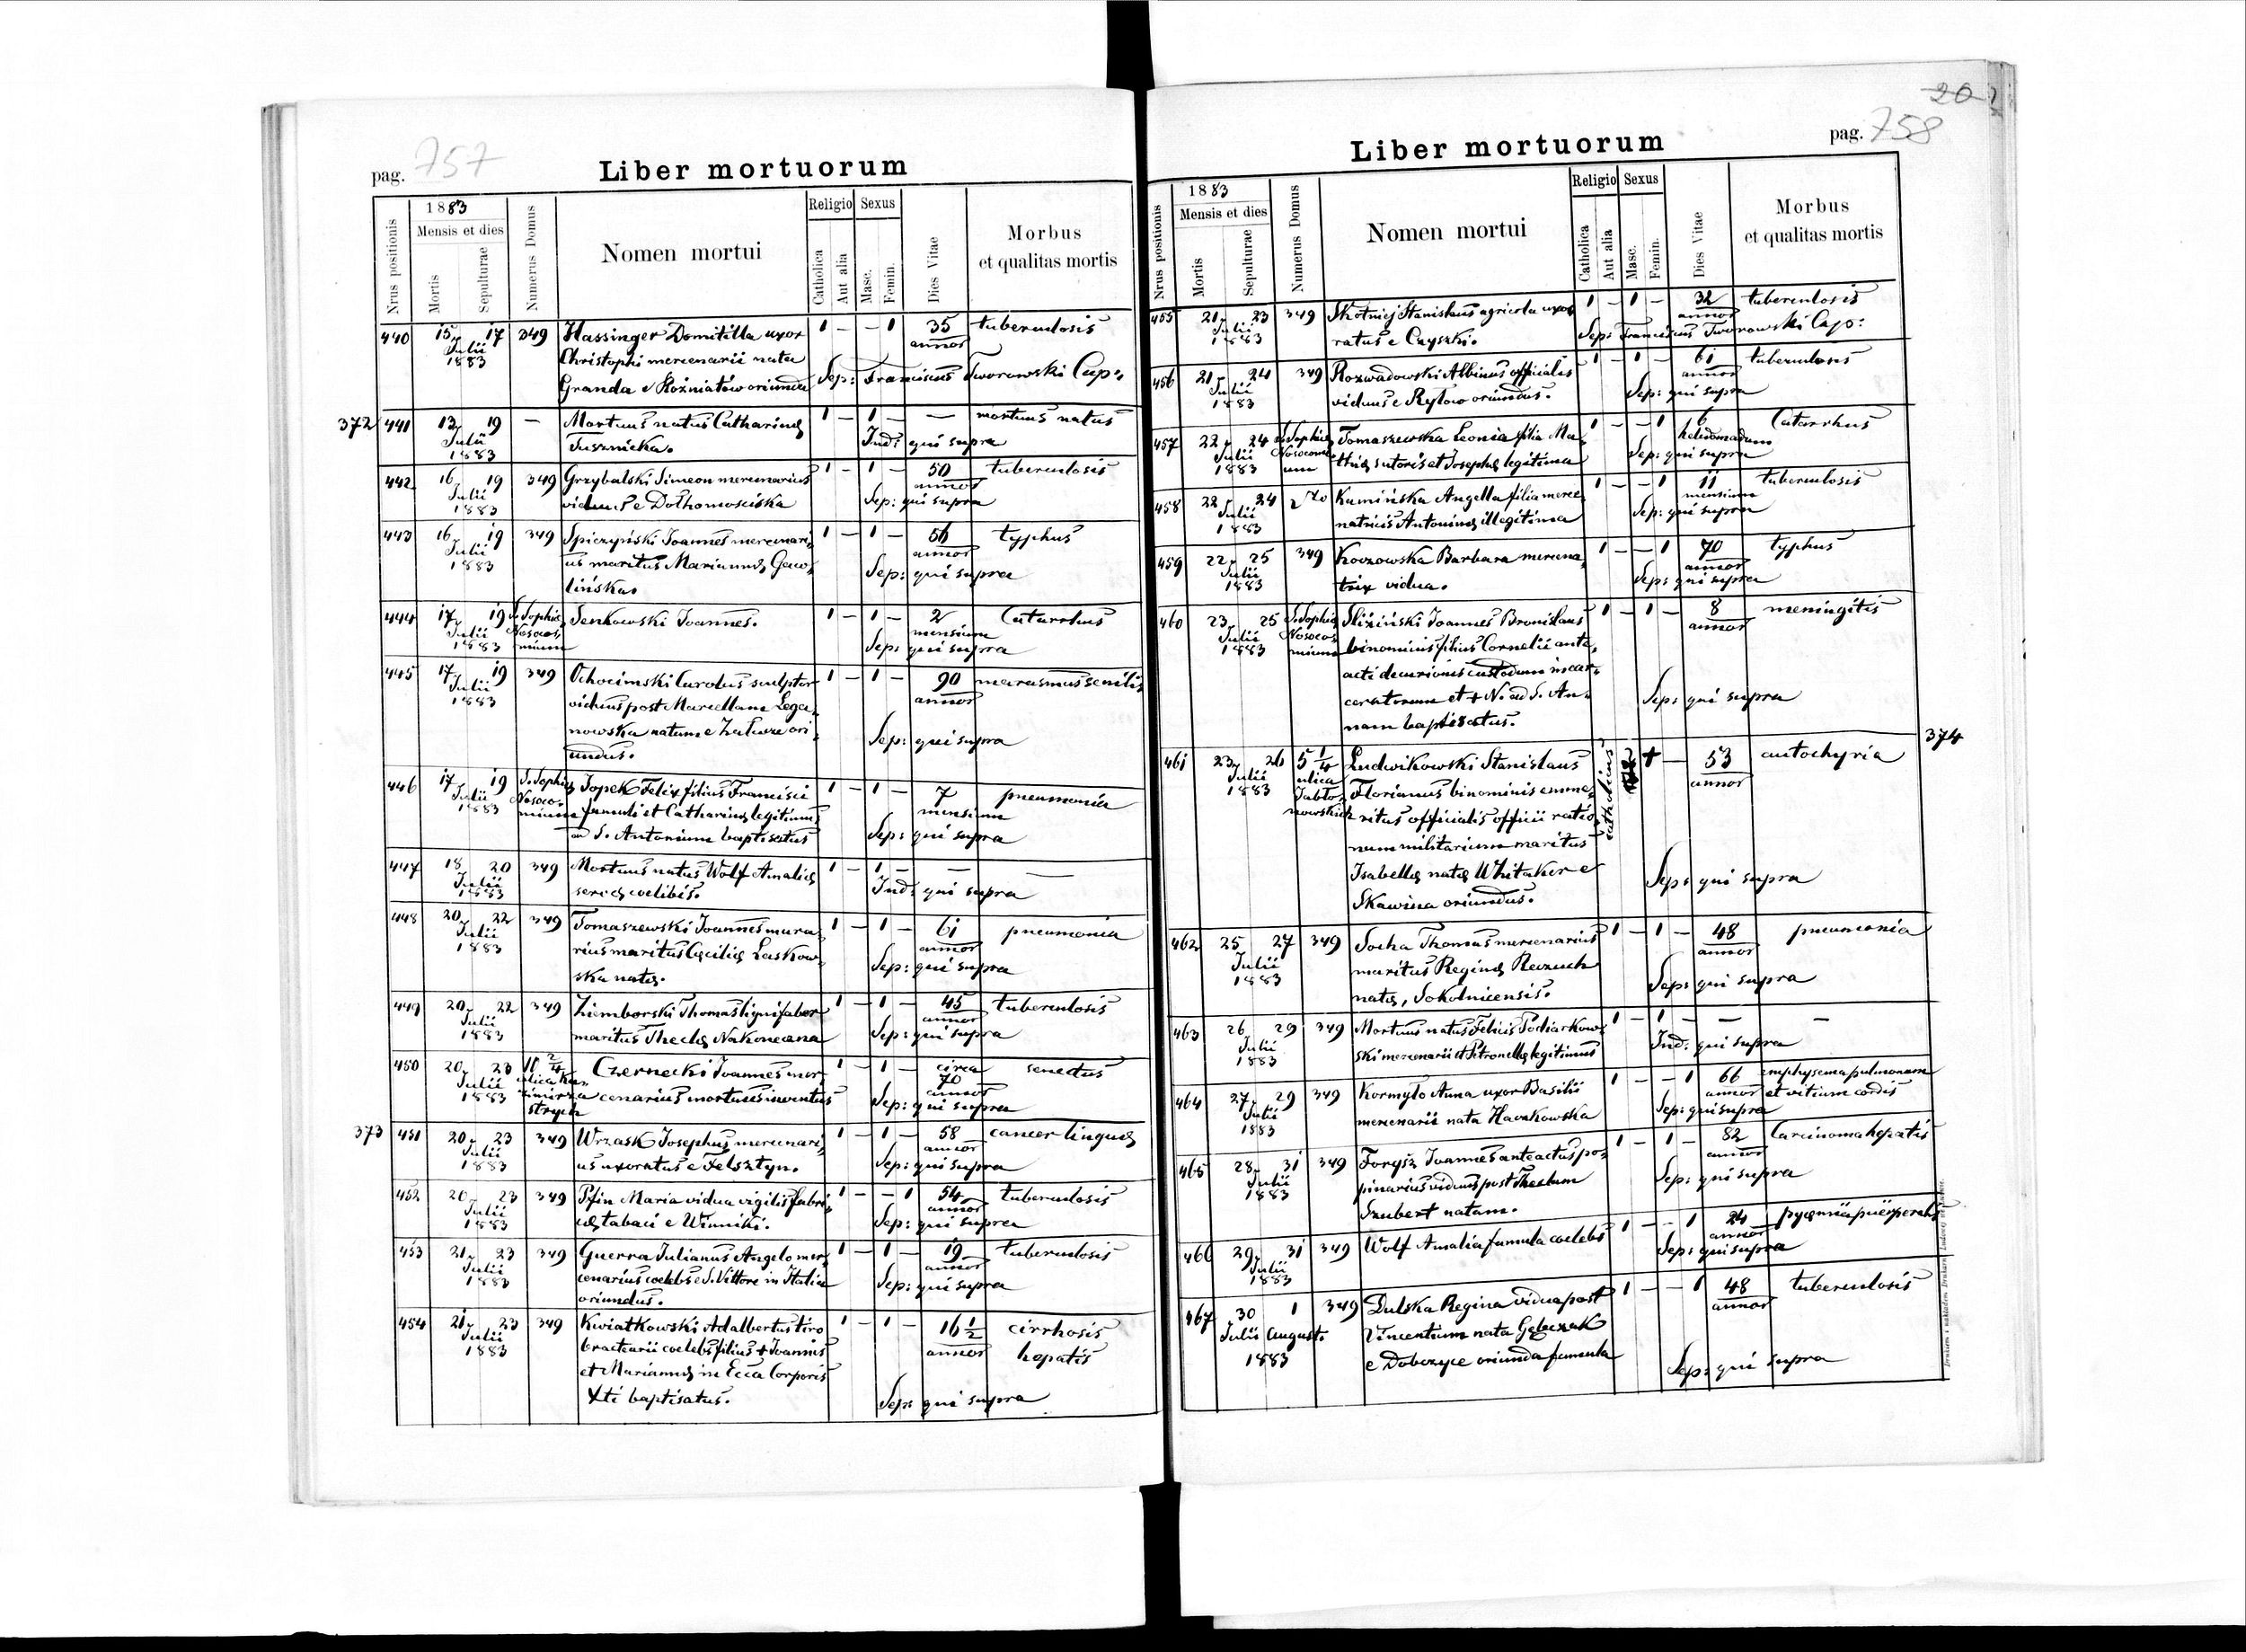 pag. 757
Liber mortuorum
1883
Religio Sexus
Mensis et dies
Nrus positionis
Mortis
Sepulturae
Numerus Domus
Nomen mortui
Catholica
Aut alia
Masc.
Femin.
Dies Vitae
Morbus
et qualitas mortis
440 15 17 349 Hassinger Domitilla uxor 1 — — 1 35 tuberculosis
Julii Christophi mercenarii nata annor
1883 Granda e Rożniatów oriunda Sep: Franciscus Tworowski Cap:
372 441 13 19 — Mortuus natus Catharinę 1 — 1 — — mortuus natus
Julii Tusznicka. Ind: qui supra
1883
442 16 19 349 Grzybalski Simeon mercenarius 1 — 1 — 50 tuberculosis
Julii viduus e Dołhomościska annor
1883 Sep: qui supra
443 16 19 349 Spiczyński Joannes mercenari, 1 — 1 — 56 typhus
Julii us maritus Mariannę Gaw, annor
1883 lińska. Sep: qui supra
444 17 19 S. Sophię Senkowski Joannes. 1 — 1 — 2 Catarrhus
Julii Nosoco, mensium
1883 mium Sep: qui supra
445 17 19 349 Ochocimski Carolus sculptor 1 — 1 — 90 marasmus senilis
Julii viduus post Marcellam Lega, annor
1883 nowska natum e Załuże ori,
undus. Sep: qui supra
446 17 19 S. Sophię Jopek Felix filius Francisci 1 — 1 — 7 pneumonia
Julii Nosoco, famuli et Catharinę legitimus, mensium
1883 mium ad S. Antonium baptisatus Sep: qui supra
447 18 20 349 Mortuus natus Wolf Amalię 1 — 1 — — —
Julii servę coelibis. Ind: qui supra
1883
448 20 22 349 Tomaszewski Joannes mura, 1 — 1 — 61 pneumonia
Julii rius maritus Cęcilię Laskow, annor
1883 ska natę. Sep: qui supra
449 20 22 349 Ziemborski Thomas lignifaber 1 — 1 — 45 tuberculosis
Julii maritus Theclę Nakoneczna annor
1883 Sep: qui supra
450 20 23 10 2/4 Czernecki Joannes mer, 1 — 1 — circa senectus
Julii ulica Ka, cenarius mortuus inventus 70
1883 zimirza annor
strych Sep: qui supra
373 451 20 23 349 Wrzask Josephus mercenari, 1 — 1 — 58 cancer linguę
Julii us uxoratus e Felsztyn. annor
1883 Sep: qui supra
452 20 23 349 Pfin Maria vidua vigilis fabri, 1 — — 1 54 tuberculosis
Julii cę tabaci e Winniki. annor
1883 Sep: qui supra
453 21 23 349 Guerra Julianus Angelo mer, 1 — 1 — 19 tuberculosis
Julii cenarius coelebs e S. Vittore in Italia annor
1883 oriundus. Sep: qui supra
454 21 23 349 Kwiatkowski Adalbertus tiro 1 — 1 — 16 1/2 cirrhosis
Julii bractearii coelebs filius + Joannis annor hepatis
1883 et Mariannę in Ecca Corporis
Xti baptisatus. Sep: qui supra
20
pag. 758
Liber mortuorum
1883
Religio Sexus
Mensis et dies
Nrus positionis
Mortis
Sepulturae
Numerus Domus
Nomen mortui
Catholica
Aut alia
Masc.
Femin.
Dies Vitae
Morbus
et qualitas mortis
455 21 23 349 Skotnicj Stanislaus agricola uxo, 1 — 1 — 32 tuberculosis
Julii ratus e Czyszki. annor
1883 Sep: Franciscus Tworowski Cap:
456 21 24 349 Rozwadowski Albinus officialis 1 — 1 — 61 tuberculosis
Julii viduus e Ryłow oriundus. annor
1883 Sep: qui supra
457 22 24 S. Sophię Tomaszewska Leonia filia Ma, 1 — — 1 6 Catarrhus
Julii Nosocomi, thię sutoris et Josephę legitima hebdomadum
1883 um Sep: qui supra
458 22 24 270 Kamińska Angella filia merce, 1 — — 1 11 tuberculosis
Julii natricis Antoninę illegitima mensium
1883 Sep: qui supra
459 22 25 349 Kozowska Barbara mercena, 1 — — 1 70 typhus
Julii trix vidua. annor
1883 Sep: qui supra
460 23 25 S. Sophię Sliziński Joannes Bronislaus 1 — 1 — 8 meningitis
Julii Nosoco, binominis filius Cornelii ante, annor
1883 mium acti decurionis custodum incar,
ceratorum et + N. ad S. An,
nam baptisatus. Sep: qui supra
461 23 26 5 1/4 Ludwikowski Stanislaus catholicus + — 53 autochyria 374
Julii ulica Florianus binominis eme, annor
1883 Jabło, ritus officialis officii ratio,
nowskich num militarium maritus
Isabellę natę Whitaker e
Skawina oriundus. Sep: qui supra
462 25 27 349 Socha Thomas mercenarius 1 — 1 — 48 pneumonia
Julii maritus Reginę Reczuch annor
1883 natę, Sokolnicensis. Sep: qui supra
463 26 29 349 Mortuus natus Felicis Podiarkow, 1 — 1 — — —
Julii ski mercenarii et Petronellę legitimus Ind: qui supra
1883
464 27 29 349 Kormyło Anna uxor Basilii 1 — — 1 66 emphysema pulmonum
Julii mercenarii nata Hawkowska annor et vitium cordis
1883 Sep: qui supra
465 28 31 349 Foryś Joannes anteactus po, 1 — 1 — 82 Carcinoma hepatis
Julii pinarius viduus post Theclam annor
1883 Szubert natam. Sep: qui supra
466 29 31 349 Wolf Amalia famula coelebs 1 — — 1 24 pyęmia puerperalis
Julii annor
1883 Sep: qui supra
467 30 1 349 Dulska Regina vidua post 1 — — 1 48 tuberculosis
Julii August. Vincentium nata Gębczak annor
1883 e Dobczyce oriunda famula Sep: qui supra